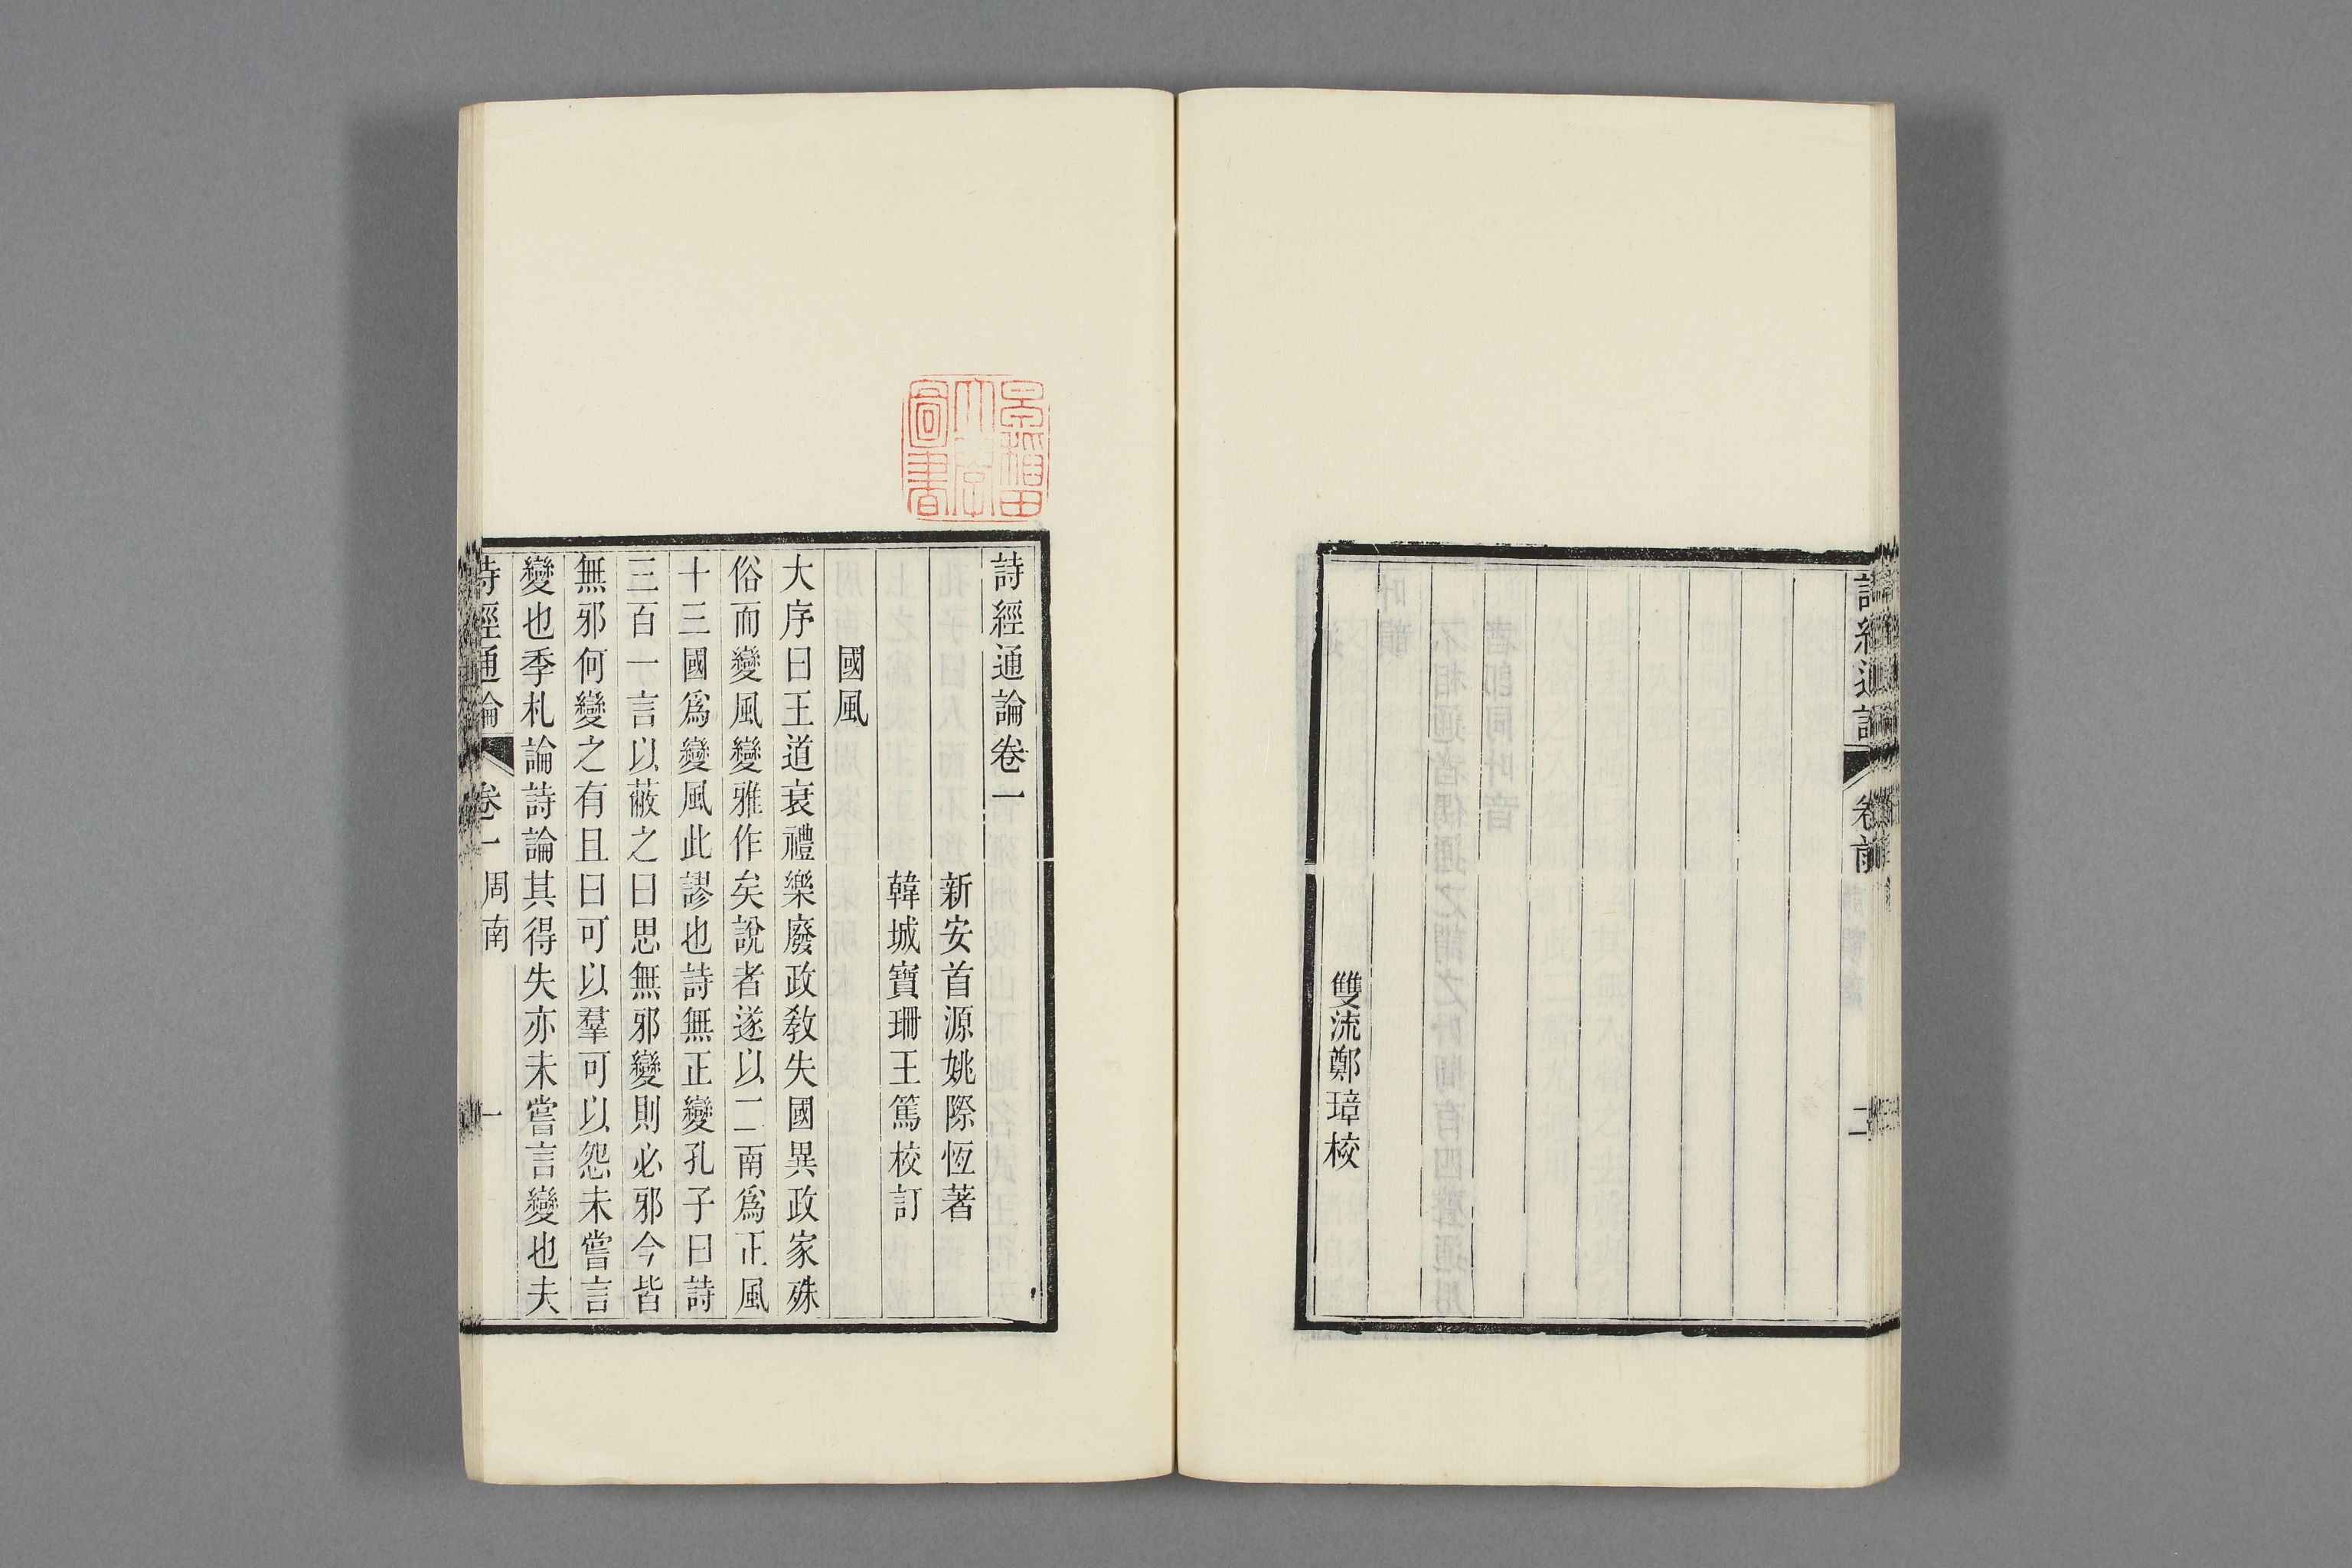 詩經通論
卷前
二
雙流鄭璋校
早稻田
大學
圖書
詩經通論卷一
新安首源姚際恆著
韓城寶珊王篤校訂
國風
大序曰王道衰禮樂廢政教失國異政家殊
俗而變風變雅作矣說者遂以二南爲正風
十三國爲變風此謬也詩無正變孔子曰詩
三百一言以蔽之曰思無邪變則必邪今皆
無邪何變之有且曰可以羣可以怨未嘗言
變也季札論詩論其得失亦未嘗言變也夫
詩經通論
卷一
周南
一